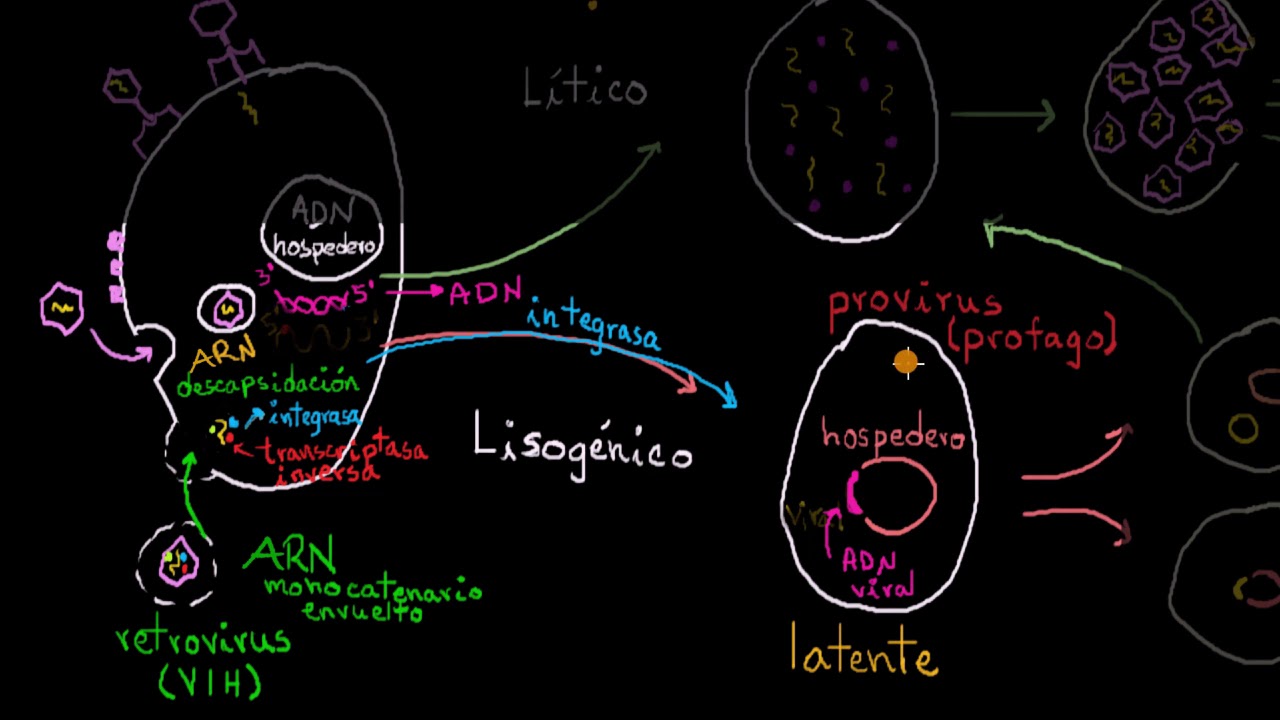 Lítico
ADN
hospedero
3'
5'
ADN
5'
3'
ARN
descapsidación
integrasa
transcriptasa
inversa
integrasa
Lisogénico
provirus
(profago)
hospedero
viral
ADN
viral
latente
ARN
monocatenario
envuelto
retrovirus
(VIH)